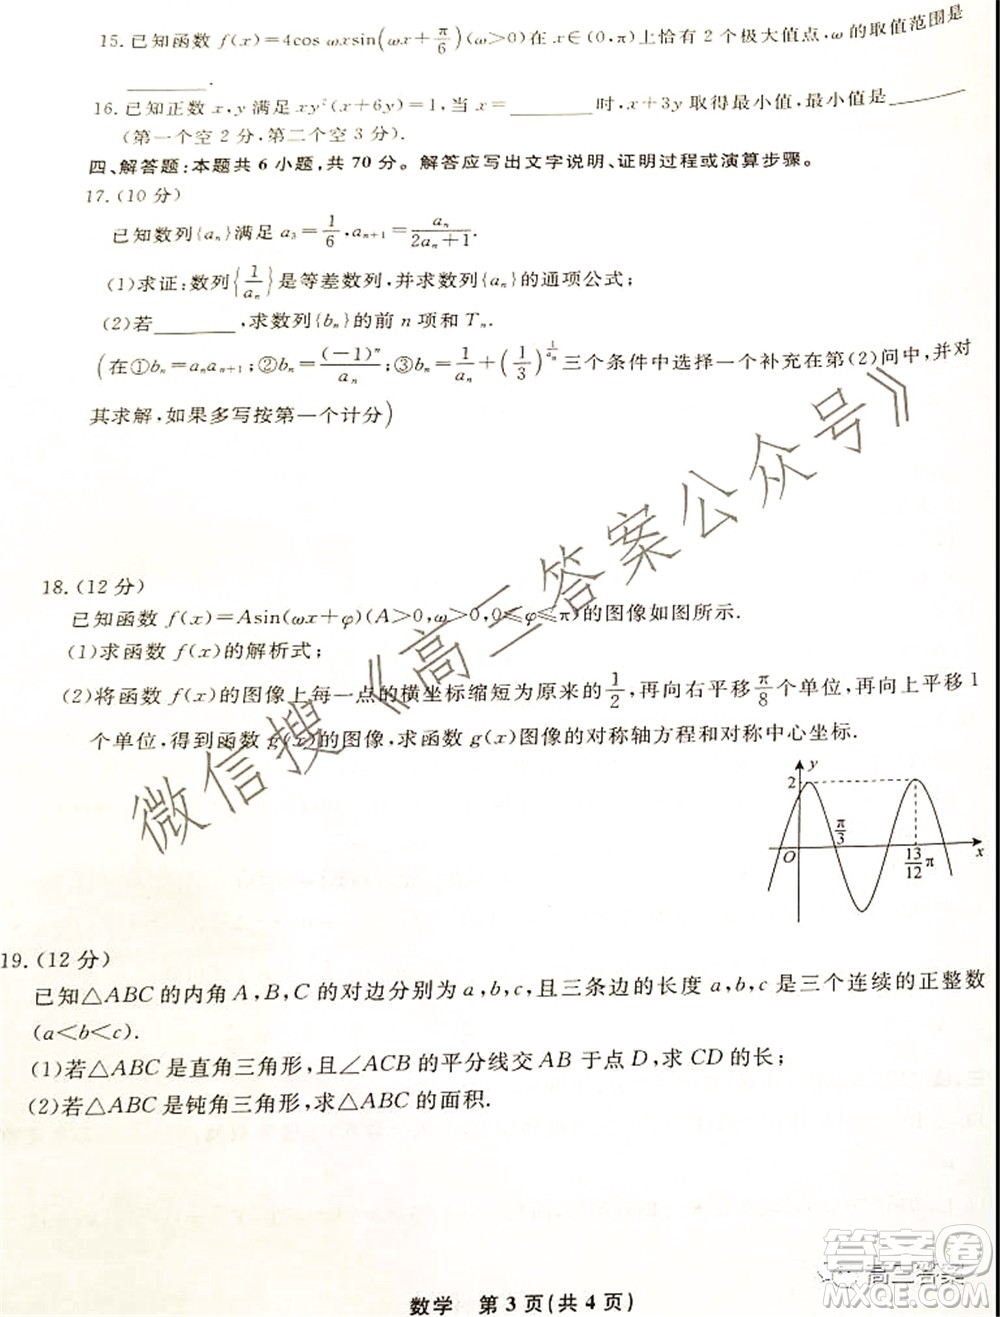 15.已知函数 f(x)=4cos ωxsin(ωx+π/6)(ω>0)在 x∈(0,π)上恰有 2 个极大值点,ω的取值范围是
________.
16.已知正数 x,y 满足 xy²(x+6y)=1,当 x=________时,x+3y 取得最小值,最小值是________
(第一个空 2 分,第二个空 3 分).
四、解答题:本题共 6 小题,共 70 分。解答应写出文字说明、证明过程或演算步骤。
17.(10 分)
已知数列{aₙ}满足 a₃=1/6,aₙ₊₁=aₙ/(2aₙ+1).
(1)求证:数列{1/aₙ}是等差数列,并求数列{aₙ}的通项公式;
(2)若________,求数列{bₙ}的前 n 项和 Tₙ.
(在①bₙ=aₙaₙ₊₁;②bₙ=(-1)ⁿ/aₙ;③bₙ=1/aₙ+(1/3)^(1/aₙ)三个条件中选择一个补充在第(2)问中,并对
其求解,如果多写按第一个计分)
18.(12 分)
已知函数 f(x)=Asin(ωx+φ)(A>0,ω>0,0≤φ≤π)的图像如图所示.
(1)求函数 f(x)的解析式;
(2)将函数 f(x)的图像上每一点的横坐标缩短为原来的1/2,再向右平移π/8个单位,再向上平移 1
个单位,得到函数 g(x)的图像,求函数 g(x)图像的对称轴方程和对称中心坐标.
y
2
π/3
O
13/12 π
x
19.(12 分)
已知△ABC 的内角 A,B,C 的对边分别为 a,b,c,且三条边的长度 a,b,c 是三个连续的正整数
(a<b<c).
(1)若△ABC 是直角三角形,且∠ACB 的平分线交 AB 于点 D,求 CD 的长;
(2)若△ABC 是钝角三角形,求△ABC 的面积.
数学 第 3 页(共 4 页)
微信搜《高三答案公众号》
高三答案
答案卷
MXQE.COM